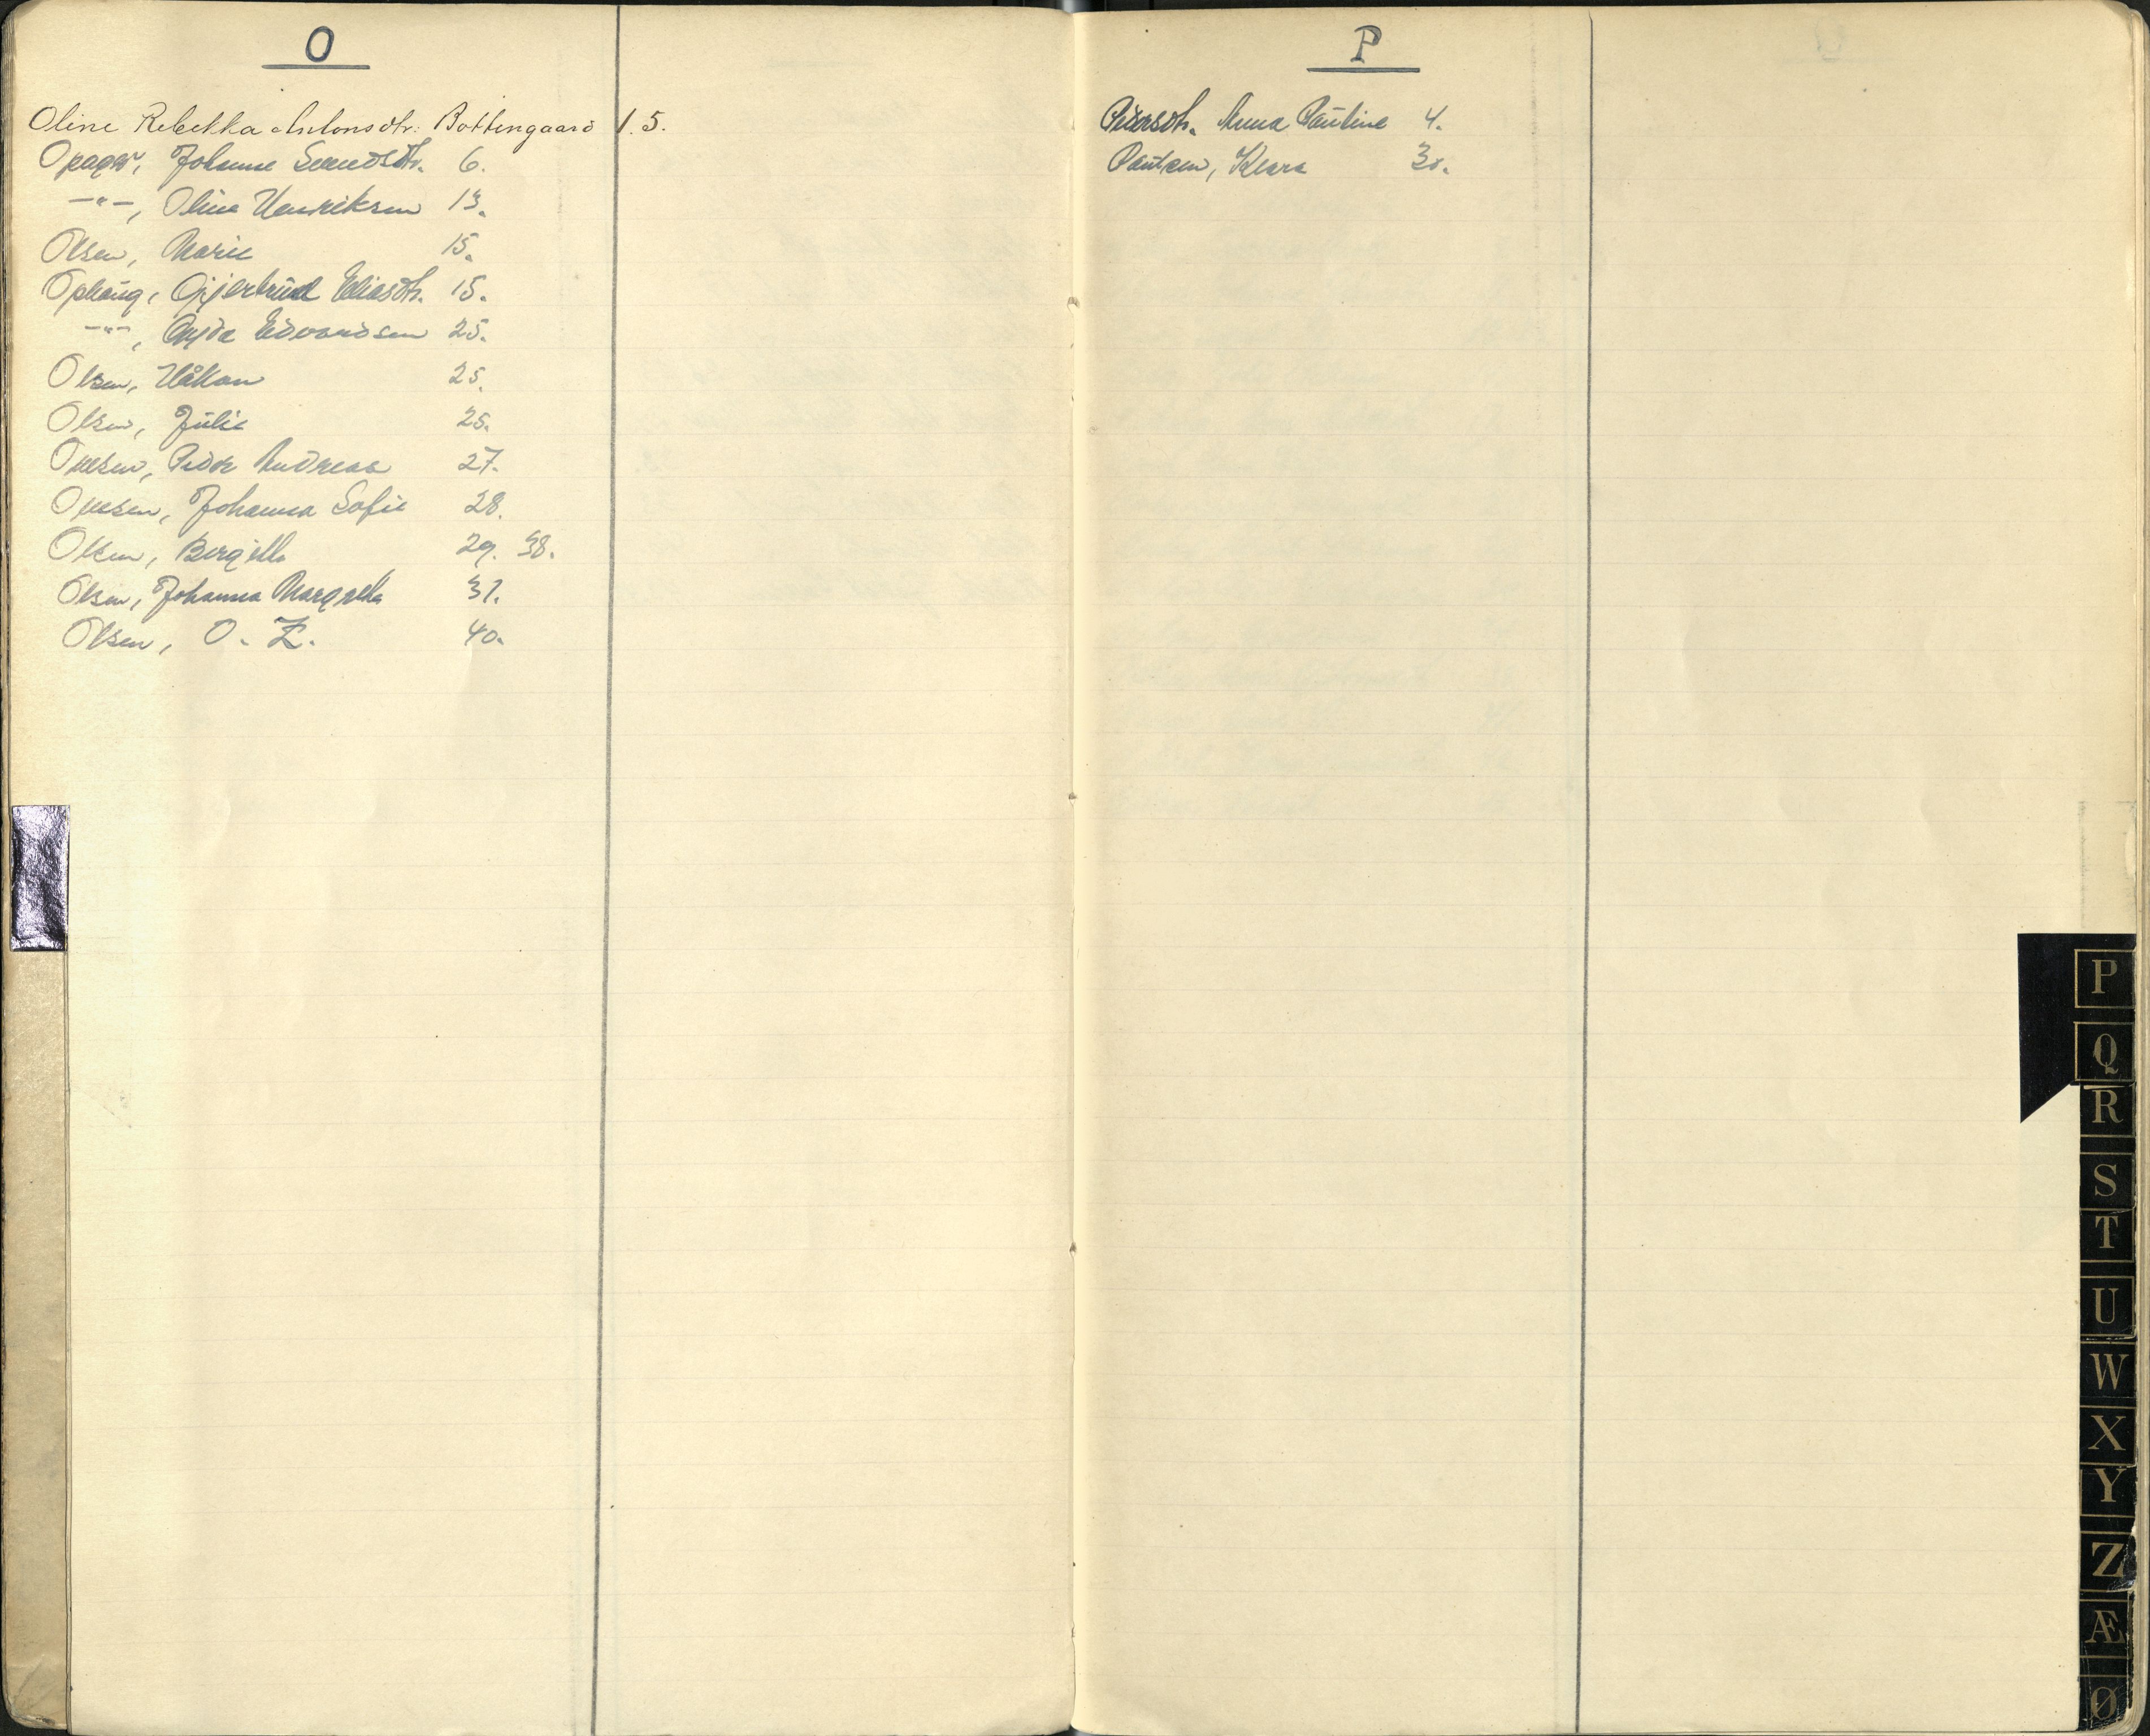 O
Oline Rebekka Antonsdtr. Bottengaard 1. 5.
Johanne 6.
—"—, Oline Henriksen 13.
Olsen, Marie 15.
Ophaug, Gjertrud Eliasdtr. 15.
—"—, Gyda Edvardsen 25.
Olsen, Håkon 25.
Olsen, Julie 25.
Peder Andreas 27.
Johanna Sofie 28.
Olsen, Bergitte 29. 38.
Olsen, Johanna Margrethe 31.
Olsen, O. Z. 40.
P
Pedersdtr. Anna Pauline 4.
Paulsen, Klara 30.
P
Q
R
S
T
U
W
X
Y
Z
Æ
Ø